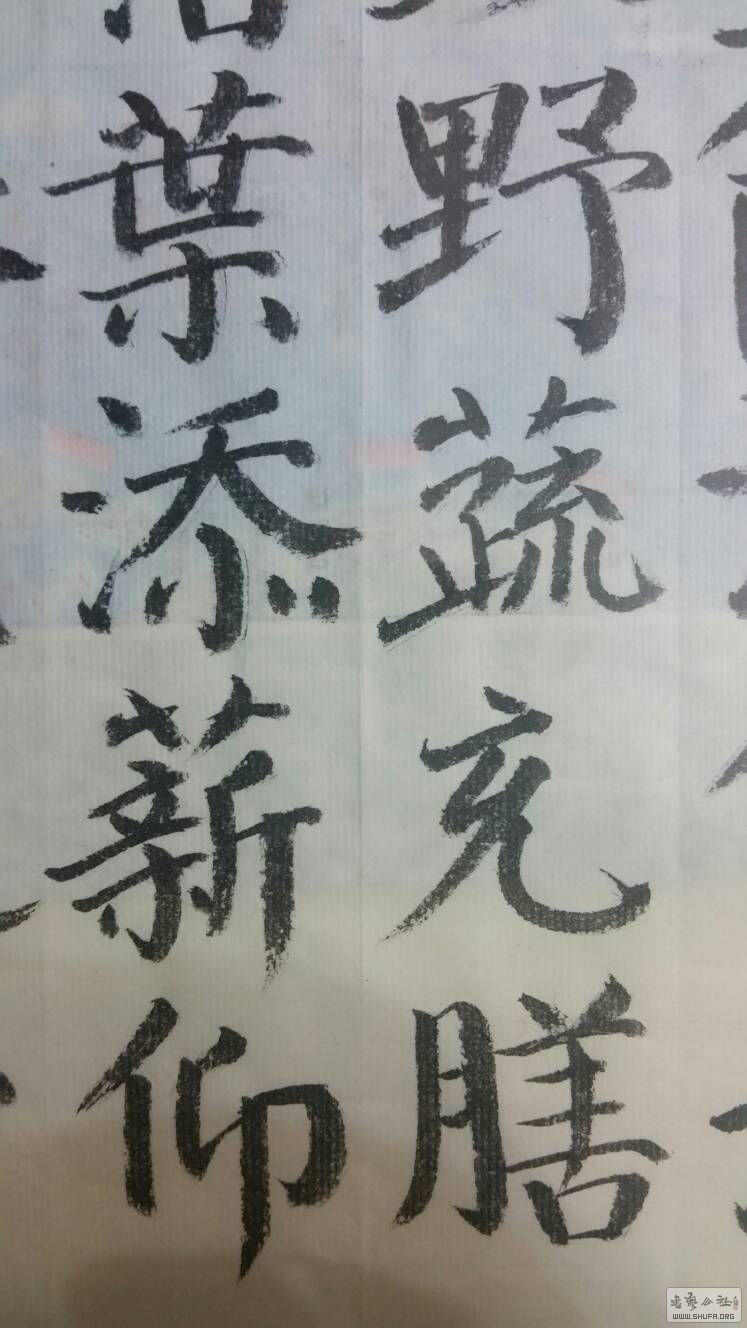 野蔬充膳
落葉添薪仰
書藝公社
WWW.SHUFA.ORG